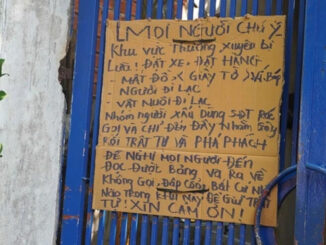 MỌI NGƯỜI CHÚ Ý
Khu vực Thường xuyên bị
LỪA! ĐẶT XE, ĐẶT HÀNG
MẤT ĐỒ (GIẤY TỜ)
NGƯỜI ĐI LẠC
VẬT NUÔI ĐI LẠC
Nhóm người XẤU DÙNG SĐT RÁC
GỌI VÀ CHỈ ĐẾN ĐÂY NHẰM GÂY
RỐI TRẬT TỰ VÀ PHÁ PHÁCH
ĐỀ NGHỊ MỌI NGƯỜI ĐẾN
ĐỌC ĐƯỢC BẢNG VÀ RA VỀ
KHÔNG GỌI, ĐẬP CỔNG BẤT CỨ NHÀ
NÀO TRONG KHU NÀY ĐỂ GIỮ TRẬT
TỰ! XIN CẢM ƠN!